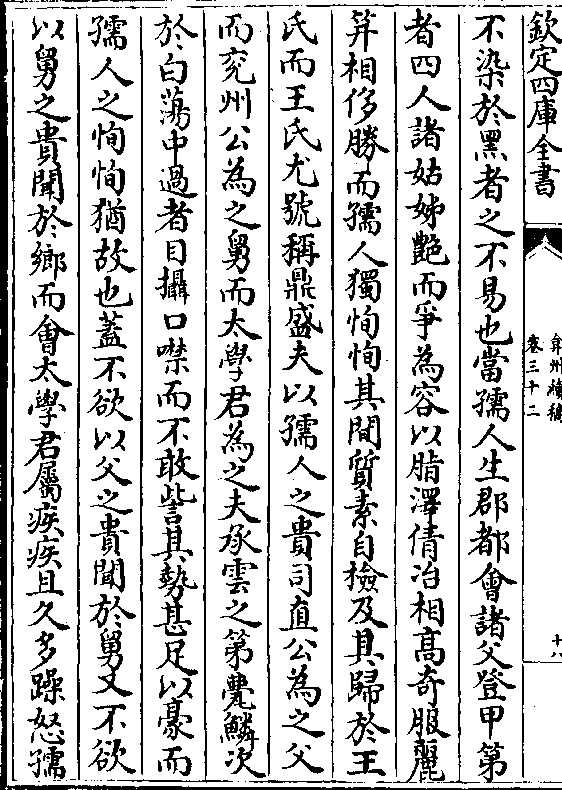 欽定四庫全書
弇州續稿
卷三十二
十八
不染於黑者之不易也當孺人生郡都會諸父登甲第
者四人諸姑姊艷而爭為容以脂澤倩冶相髙奇服麗
笄相侈勝而孺人獨恂恂其間質素自檢及其歸於王
氏而王氏尤號稱鼎盛夫以孺人之貴司直公為之父
而兖州公為之舅而太學君為之夫承雲之第甍鱗次
於白蕩中過者目攝口噤而不敢訾其勢甚足以豪而
孺人之恂恂猶故也蓋不欲以父之貴聞於舅又不欲
以舅之貴聞於鄉而會太學君屬疾疾且久多躁怒孺